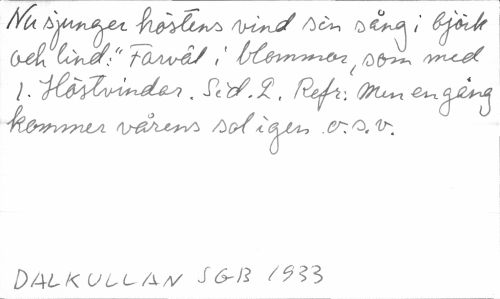 Nu sjunger höstens vind sin sång i björk
och lind: "Farväl i blommor, som med
1. Höstvindar. Sid. 2. Refr: Men en gång
kommer vårens sol igen o.s.v.
DALKULLAN SGB 1933